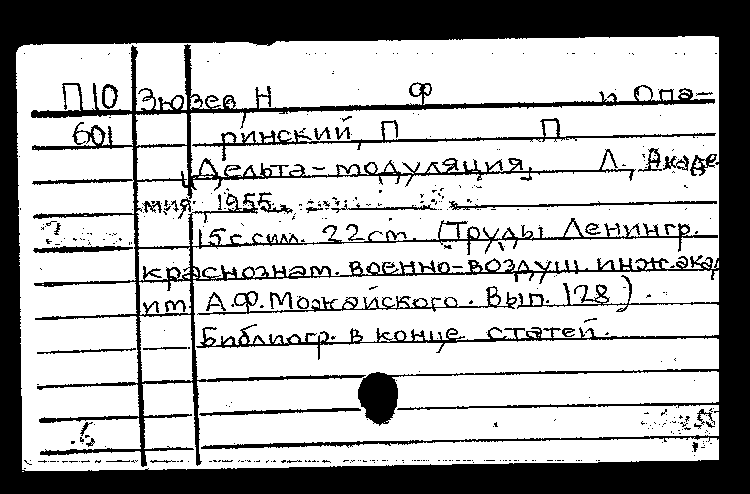 П10 Зюзев, Н Ф и Опа-
601 ринский, П П
Дельта-модуляция, Л., Акаде
мия, 1955.
15 с. сим. 22 cm. (Труды Ленингр.
краснознам. военно-воздуш. инж. акад
им А.Ф. Можайского. Вып. 128).
Библиогр. в конце статей.
.6 55